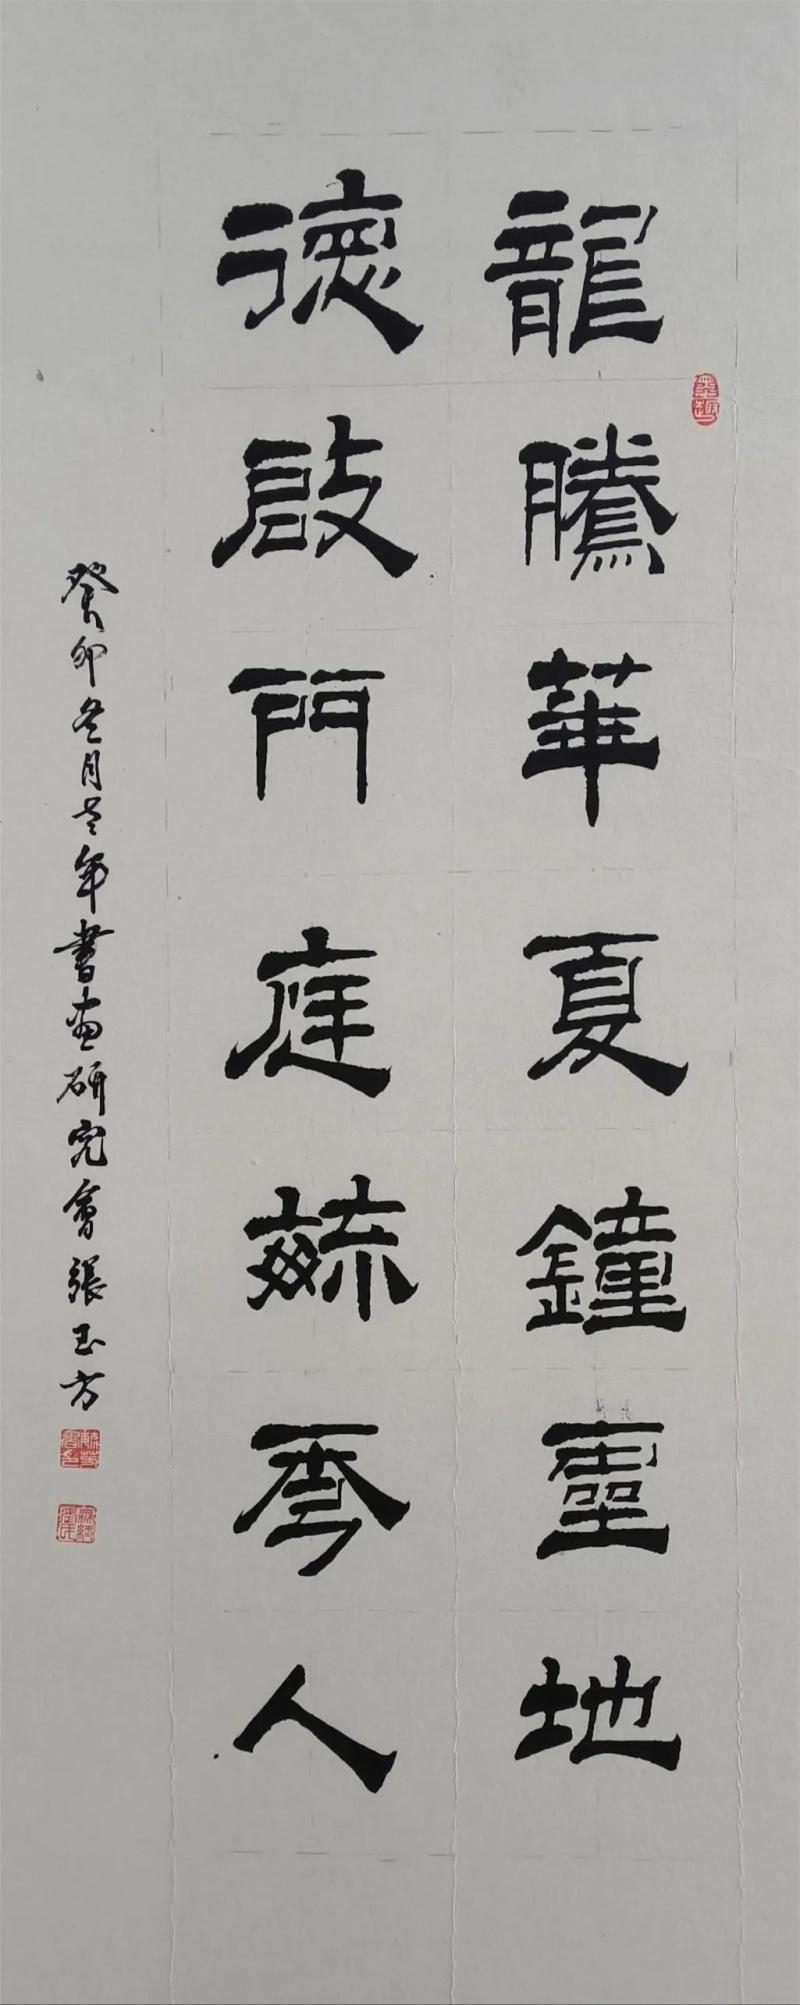 龍騰華夏鐘靈地
德啟門庭毓秀人
癸卯冬月老年書画研究會張玉方
墨趣